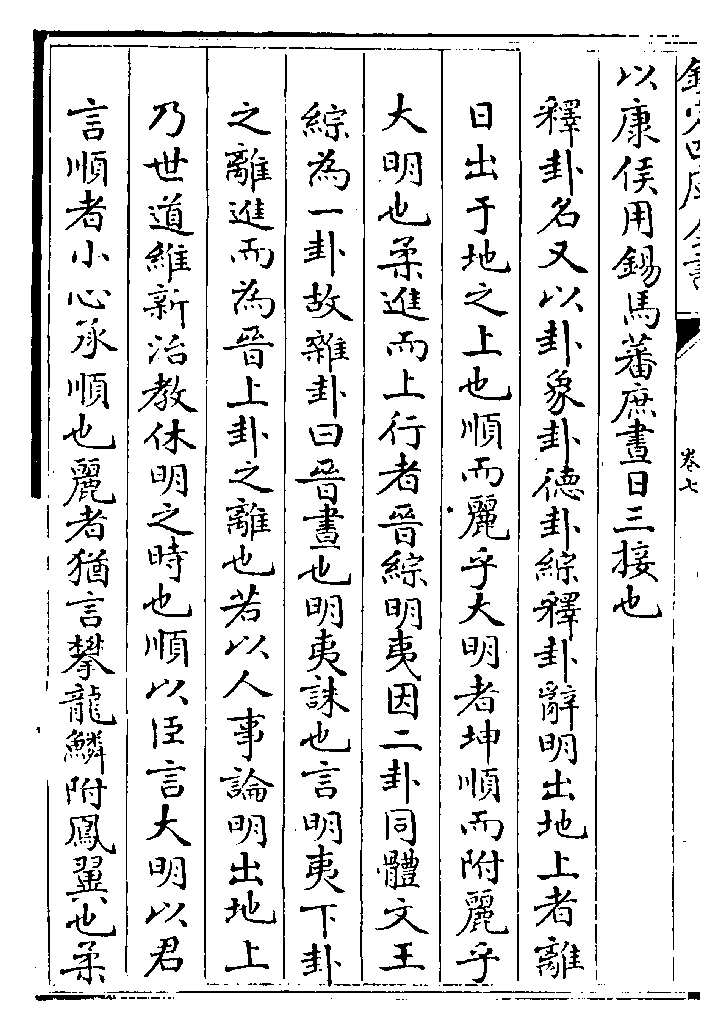 欽定四庫全書
卷七
以康侯用錫馬蕃庶晝日三接也
釋卦名又以卦象卦德卦綜釋卦辭明出地上者離
日出于地之上也順而麗乎大明者坤順而附麗乎
大明也柔進而上行者晉綜明夷因二卦同體文王
綜為一卦故雜卦曰晉晝也明夷誅也言明夷下卦
之離進而為晉上卦之離也若以人事論明出地上
乃世道維新治教休明之時也順以臣言大明以君
言順者小心承順也麗者猶言攀龍鱗附鳳翼也柔